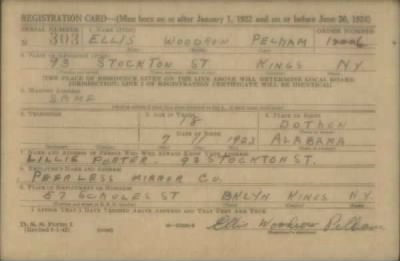 REGISTRATION CARD—(Men born on or after January 1, 1922 and on or before June 30, 1924)
SERIAL NUMBER 1. NAME (Print) ORDER NUMBER
N 303 ELLIS WOODROW PELHAM
2. PLACE OF RESIDENCE (Print)
93 STOCKTON ST KINGS N.Y.
[THE PLACE OF RESIDENCE GIVEN ON THE LINE ABOVE WILL DETERMINE LOCAL BOARD
JURISDICTION; LINE 2 OF REGISTRATION CERTIFICATE WILL BE IDENTICAL]
3. MAILING ADDRESS
SAME
4. TELEPHONE 5. AGE IN YEARS 6. PLACE OF BIRTH
18 DOTHEN
DATE OF BIRTH
7 11 1923 ALABAMA
7. NAME AND ADDRESS OF PERSON WHO WILL ALWAYS KNOW YOUR ADDRESS
LILLIE PORTER 93 STOCKTON ST.
8. EMPLOYER'S NAME AND ADDRESS
PEERLESS MIRROR CO.
9. PLACE OF EMPLOYMENT OR BUSINESS
57 ST BKLYN KINGS N.Y.
I AFFIRM THAT I HAVE VERIFIED ABOVE ANSWERS AND THAT THEY ARE TRUE.
D. S. S. Form 1
Ellis Woodrow Pelham